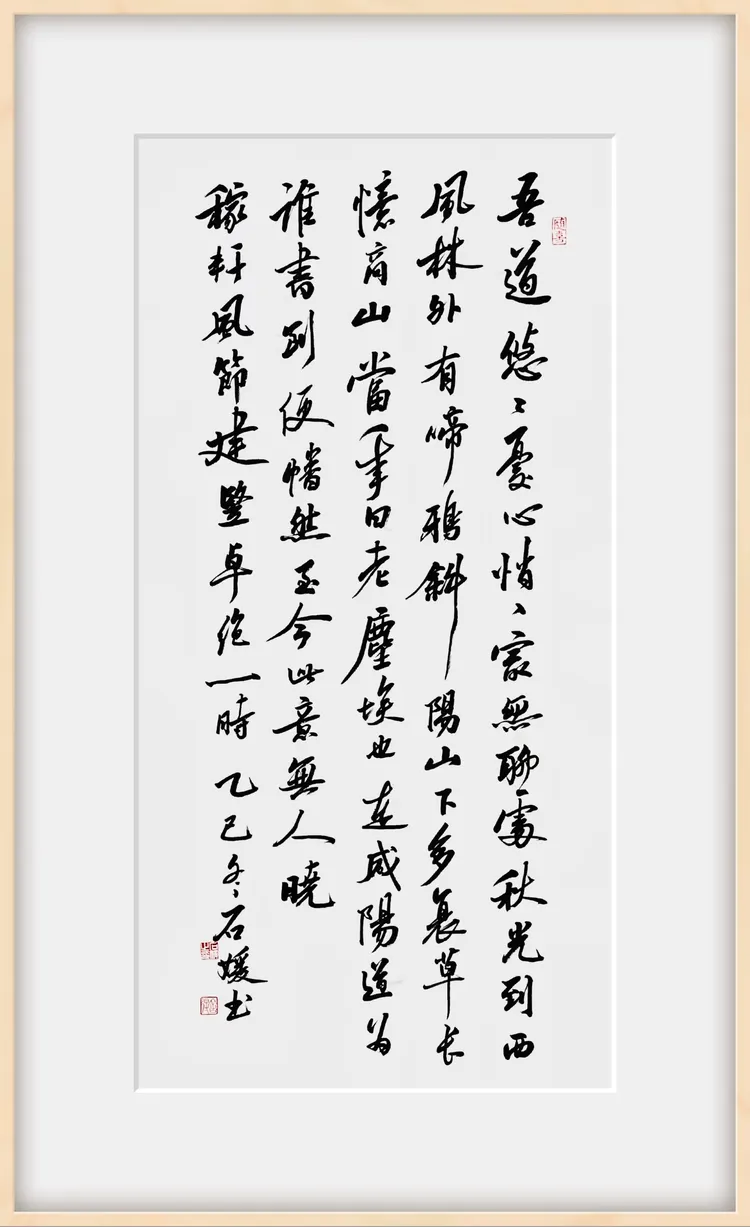 吾道悠〻憂心悄〻冣無聊處秋光到西
風林外有啼鴉斜陽山下多衰草长
憶商山當年四老塵埃也走咸陽道为
誰書到便幡然至今此意無人曉
稼軒風節建豎卓絕一時 乙巳冬石媛书